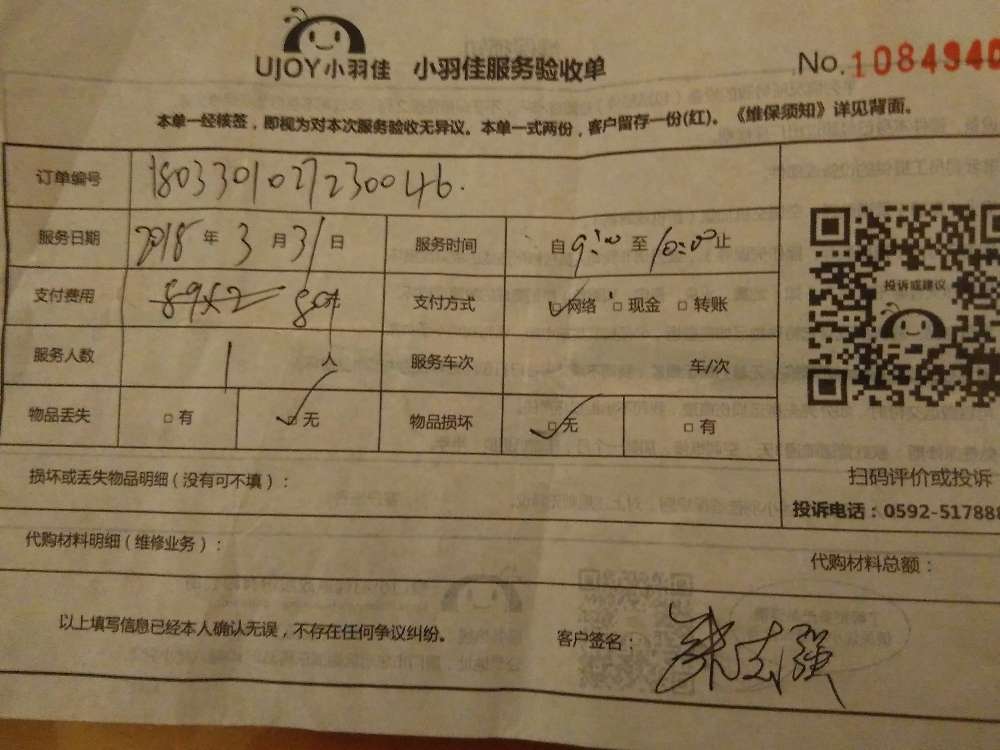 UJOY小羽佳 小羽佳服务验收单 No.1084940
本单一经核签，即视为对本次服务验收无异议。本单一式两份，客户留存一份(红)。《维保须知》详见背面。
订单编号 1803301027230046.
服务日期 2018年3月31日 服务时间 自9:00至10:00止
支付费用 元 支付方式 网络 现金 转账
服务人数 1人 服务车次 车/次
物品丢失 有 无 物品损坏 无 有
投诉或建议
扫码评价或投诉
损坏或丢失物品明细（没有可不填）：
投诉电话：0592-517888
代购材料明细（维修业务）：
代购材料总额：
以上填写信息已经本人确认无误，不存在任何争议纠纷。 客户签名：朱志强